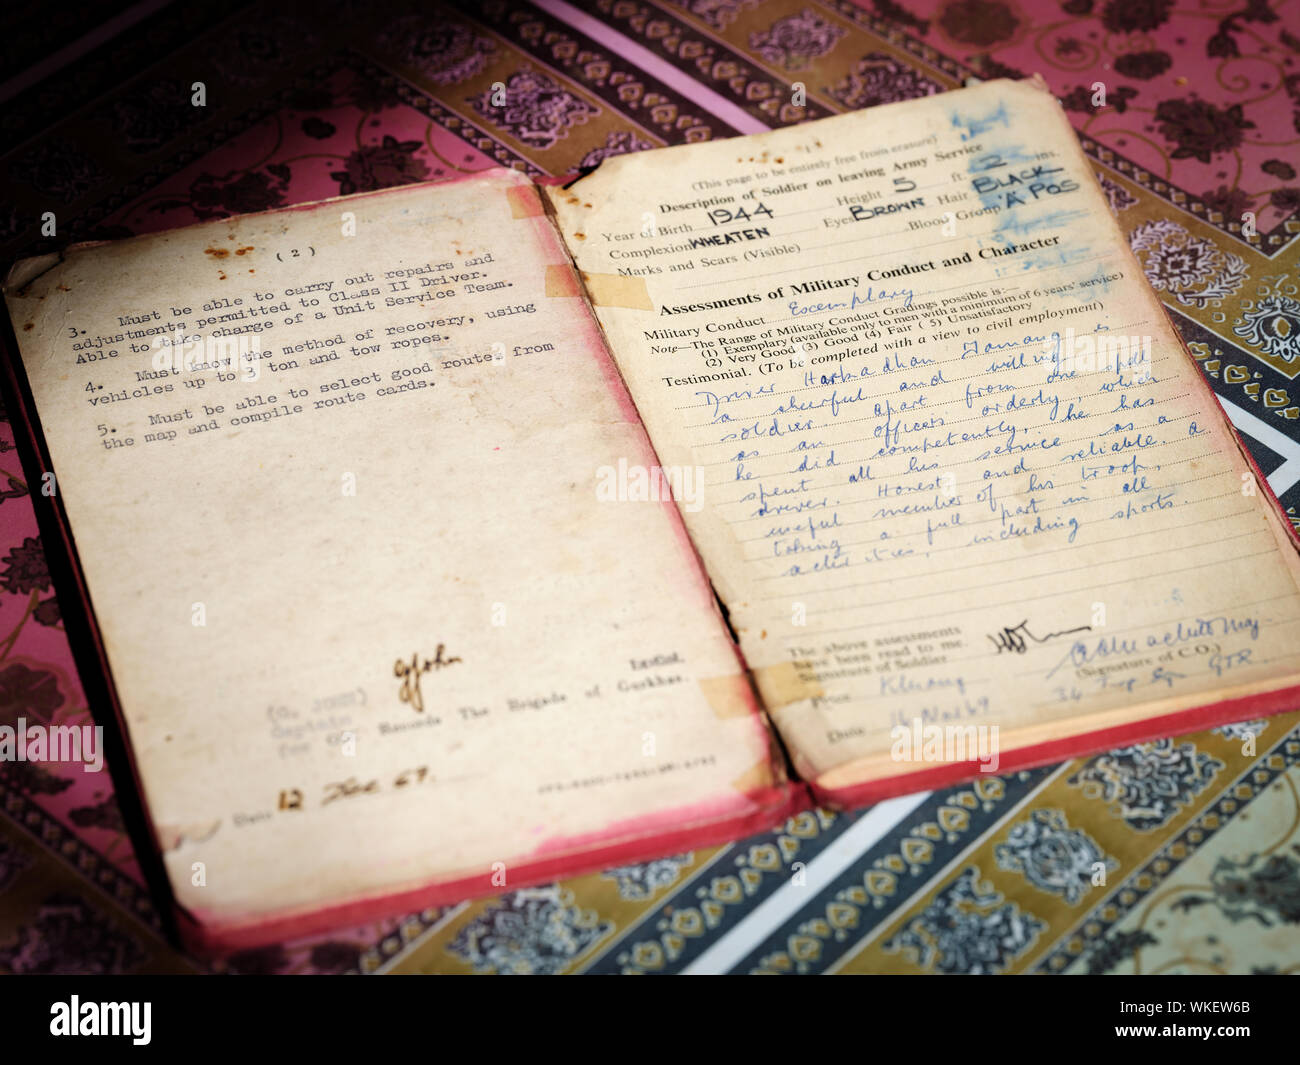 ( 2 )
3. Must be able to carry out repairs and
adjustments permitted to Class II Driver.
Able to take charge of a Unit Service Team.
4. Must know the method of recovery, using
vehicles up to 3 ton and tow ropes.
5. Must be able to select good routes from
the map and compile route cards.
GJohn
(G. JOHN)
Captain
for Records The Brigade of Gurkhas.
Date 12 Dec 67.
(This page to be entirely free from erasure)
Description of Soldier on leaving Army Service
Year of Birth 1944 Height 5 ft. 2 ins.
Complexion WHEATEN Eyes BROWN Hair BLACK
Marks and Scars (Visible) Blood Group 'A POS
Assessments of Military Conduct and Character
Military Conduct Exemplary
Note—The Range of Military Conduct Gradings possible is:—
(1) Exemplary (available only to men with a minimum of 6 years' service)
(2) Very Good (3) Good (4) Fair (5) Unsatisfactory
Testimonial. (To be completed with a view to civil employment)
Driver Harkadhan Tamang is
a cheerful and willing
soldier. Apart from one spell
as an officers orderly, which
he did competently, he has
spent all his service as a
driver. Honest and reliable. A
useful member of his troop,
taking a full part in all
activities, including sports.
The above assessments
have been read to me.
Signature of Soldier
(Signature of C.O.)
Place Kluang GTR
Date 16 Nov 69
alamy
Image ID: WKEW6B
www.alamy.com